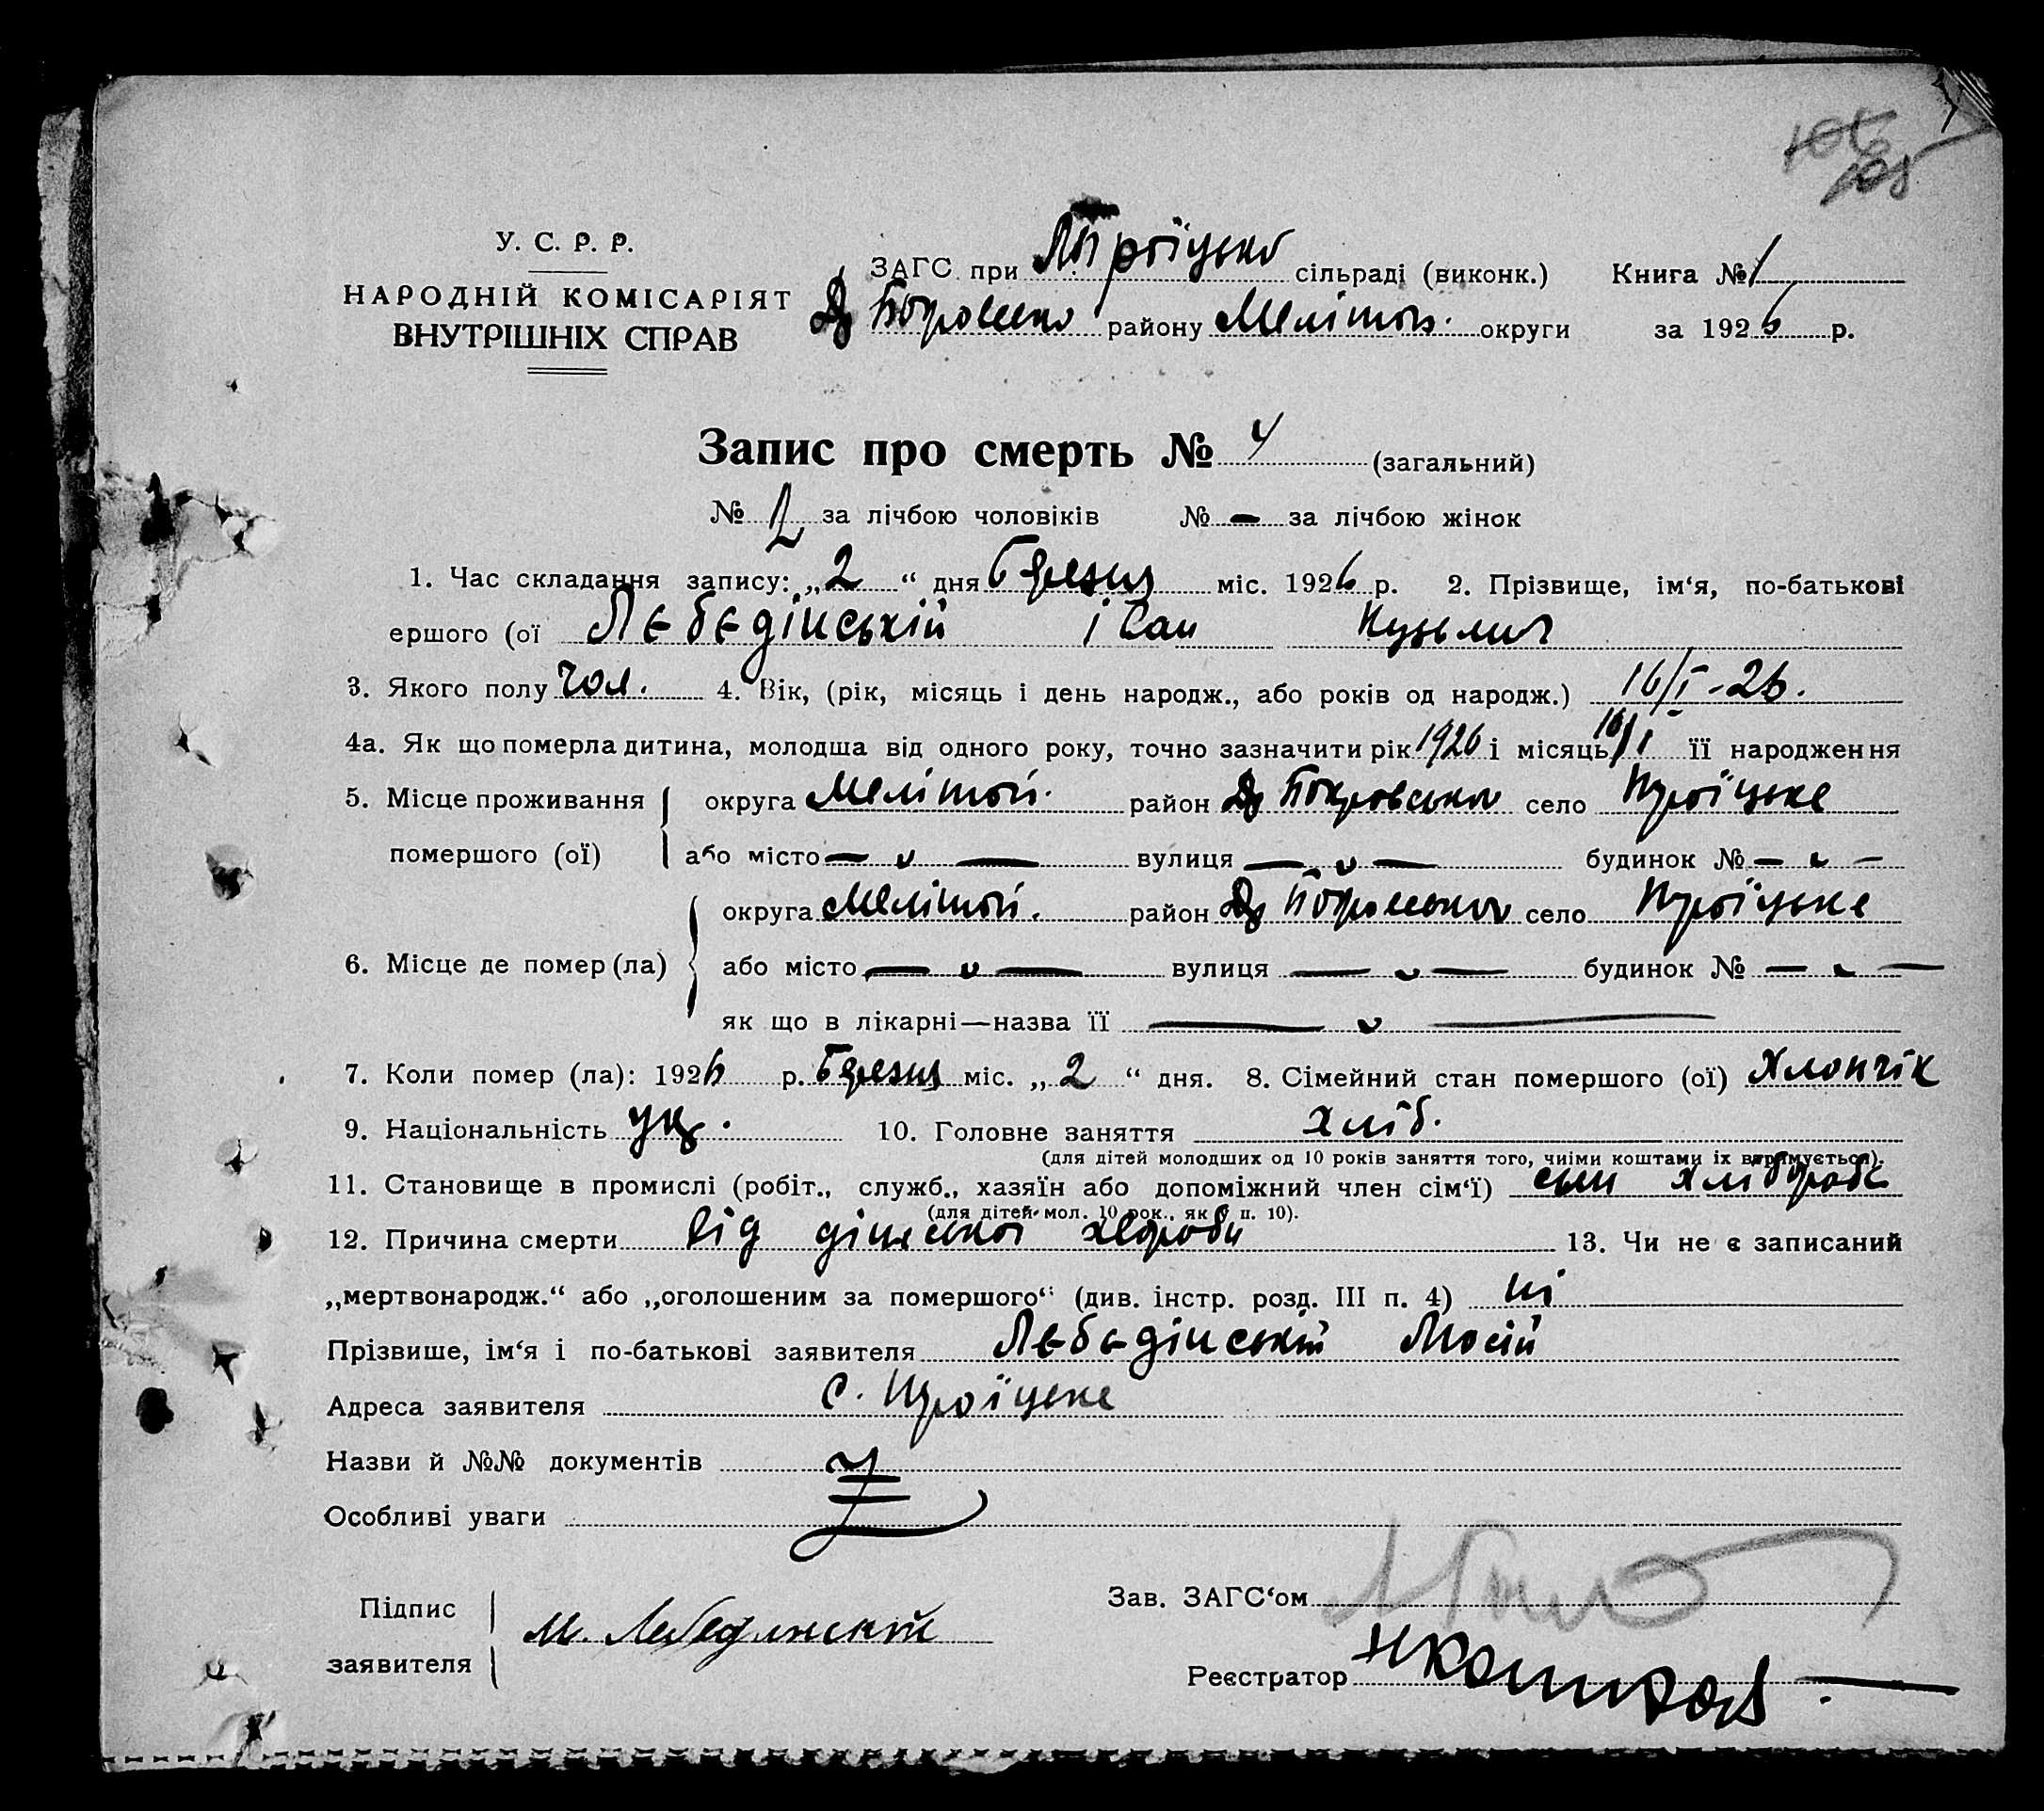 105
У. С. Р. Р.
НАРОДНІЙ КОМІСАРІЯТ
ВНУТРІШНІХ СПРАВ
ЗАГС при Троїцько сільраді (виконк.) Книга № 1
району Меліт округи за 1926 р.
Запис про смерть № 4 (загальний)
№ 2 за лічбою чоловіків № – за лічбою жінок
1. Час складання запису: „2“ дня Березня міс. 1926 р. 2. Прізвище, ім‘я, по-батькові
ершого (ої Лєбєдінській іван Кузьмич
3. Якого полу чол. 4. Вік, (рік, місяць і день народж., або років од народж.) 16/I-26.
4а. Як що померла дитина, молодша від одного року, точно зазначити рік 1926 і місяць 16/I її народження
5. Місце проживання округа Мелітоп. район Др Покровсько село Троїцьке
помершого (ої) або місто — „ — вулиця — „ — будинок № — „ —
округа Мелітоп. район Др село Троїцьке
6. Місце де помер (ла) або місто — „ — вулиця — „ — будинок № — „ —
як що в лікарні—назва її — „ —
7. Коли помер (ла): 1926 р. Березня міс. „2“ дня. 8. Сімейний стан помершого (ої) Хлопчік
9. Національність укр. 10. Головне заняття хліб.
(для дітей молодших од 10 років заняття того, чиїми коштами їх втримується).
11. Становище в промислі (робіт., служб., хазяїн або допоміжний член сім‘ї) син хлібороба
(для дітей мол. 10 рок., як у п. 10).
12. Причина смерти від дітської хвороби 13. Чи не є записаний
„мертвонародж.“ або „оголошеним за помершого“ (див. інстр. розд. III п. 4) ні
Прізвище, ім‘я і по-батькові заявителя Лєбєдінській Мосій
Адреса заявителя с. Троїцьке
Назви й №№ документів
Особливі уваги
Підпис
заявителя М. Лебединский
Зав. ЗАГС‘ом
Реєстратор